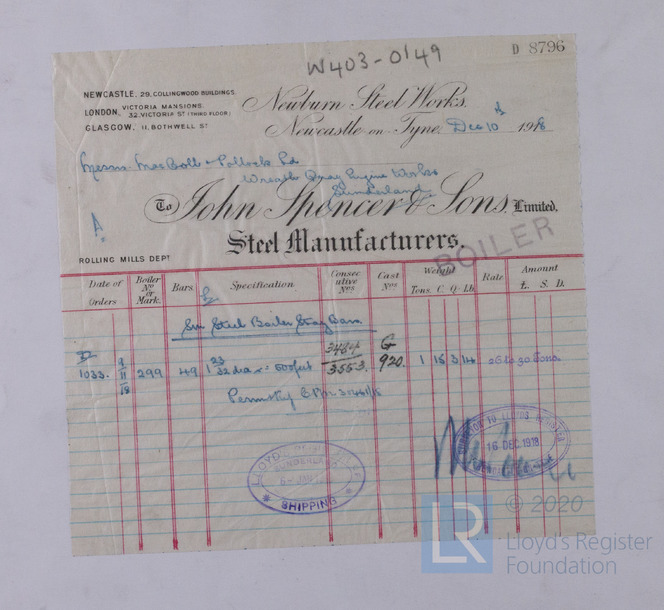 W403-0149
D 8796
NEWCASTLE, 29. COLLINGWOOD BUILDINGS.
LONDON, VICTORIA MANSIONS.
32, VICTORIA ST (THIRD FLOOR)
GLASGOW, 11. BOTHWELL ST
Newburn Steel Works.
Newcastle on Tyne, Dec 10th 1918
Messrs. MacColl & Pollock Ld
Wreath Quay Engine Works
Sunderland
To John Spencer & Sons, Limited,
Steel Manufacturers.
BOILER
ROLLING MILLS DEPT
Date of Orders
Boiler No or Mark.
Bars
Specification
Consecutive Nos
Cast Nos
Weight
Tons. C. Q. Lb.
Rate
Amount
£. S. D.
Steel Boiler Stay Bars
1033. 9/11/18 299 49 1 23/32 dia 3553. G 920. 1 15 3 14 26 to 30 Tons.
LLOYD'S REGISTER
SUNDERLAND
SHIPPING
SURVEYOR TO LLOYD'S REGISTER
16 DEC. 1918
© 2020
LR
Lloyd's Register
Foundation